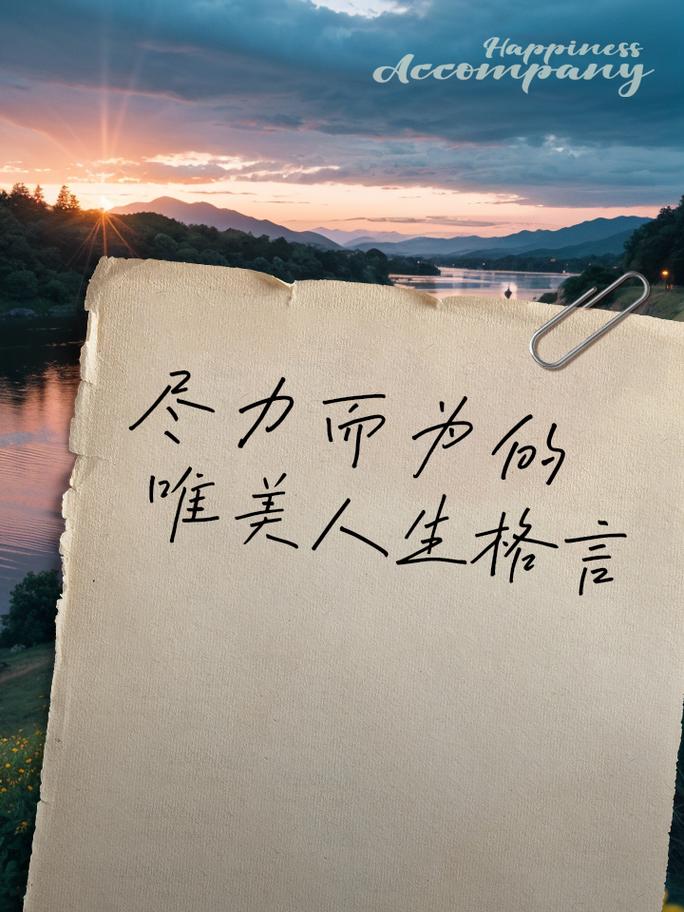 Happiness
Accompany
尽力而为的
唯美人生格言